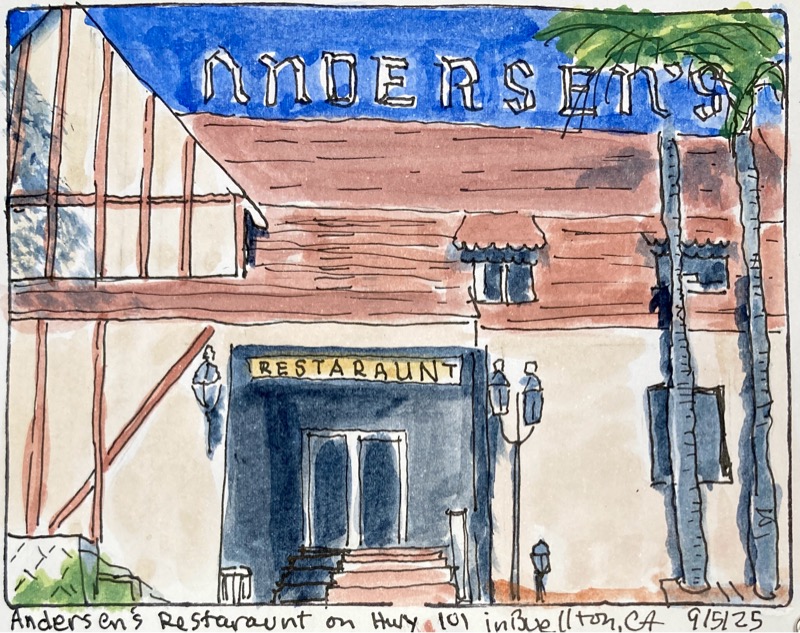 ANDERSEN'S
RESTARAUNT
Andersen's Restaraunt on Hwy 101 in Buellton, CA 9/5/25